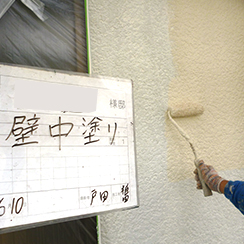 様邸
壁中塗り
6/10
戸田